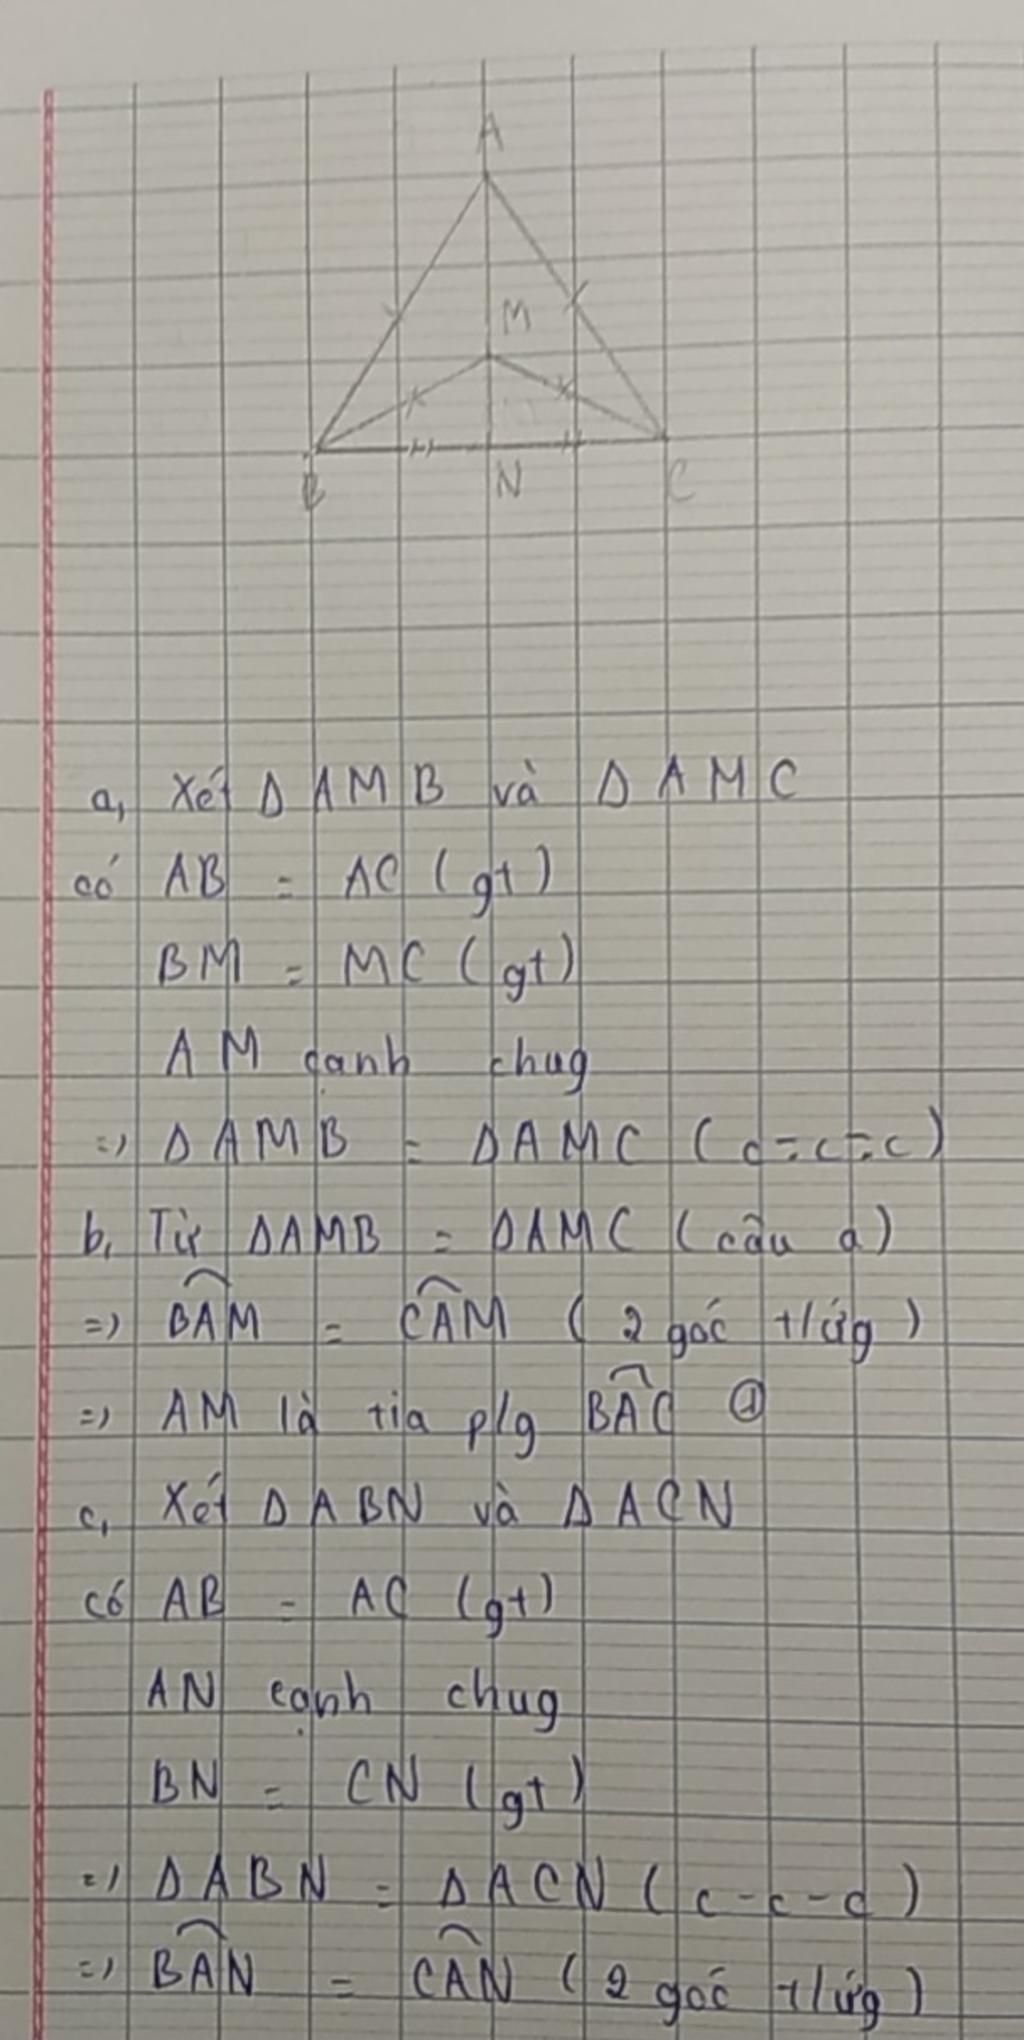 A
M
B
N
C
a, Xét Δ AMB và Δ AMC
có AB = AC (gt)
BM = MC (gt)
AM cạnh chug
=) Δ AMB = ΔAMC (c-c-c)
b, Từ ΔAMB = ΔAMC (câu a)
=) BAM = CAM (2 góc t/ứg)
=) AM là tia p/g BAC ①
c, Xét Δ ABN và Δ ACN
có AB = AC (gt)
AN cạnh chug
BN = CN (gt)
=) Δ ABN = Δ ACN (c-c-c)
=) BAN = CAN (2 góc t/ứg)